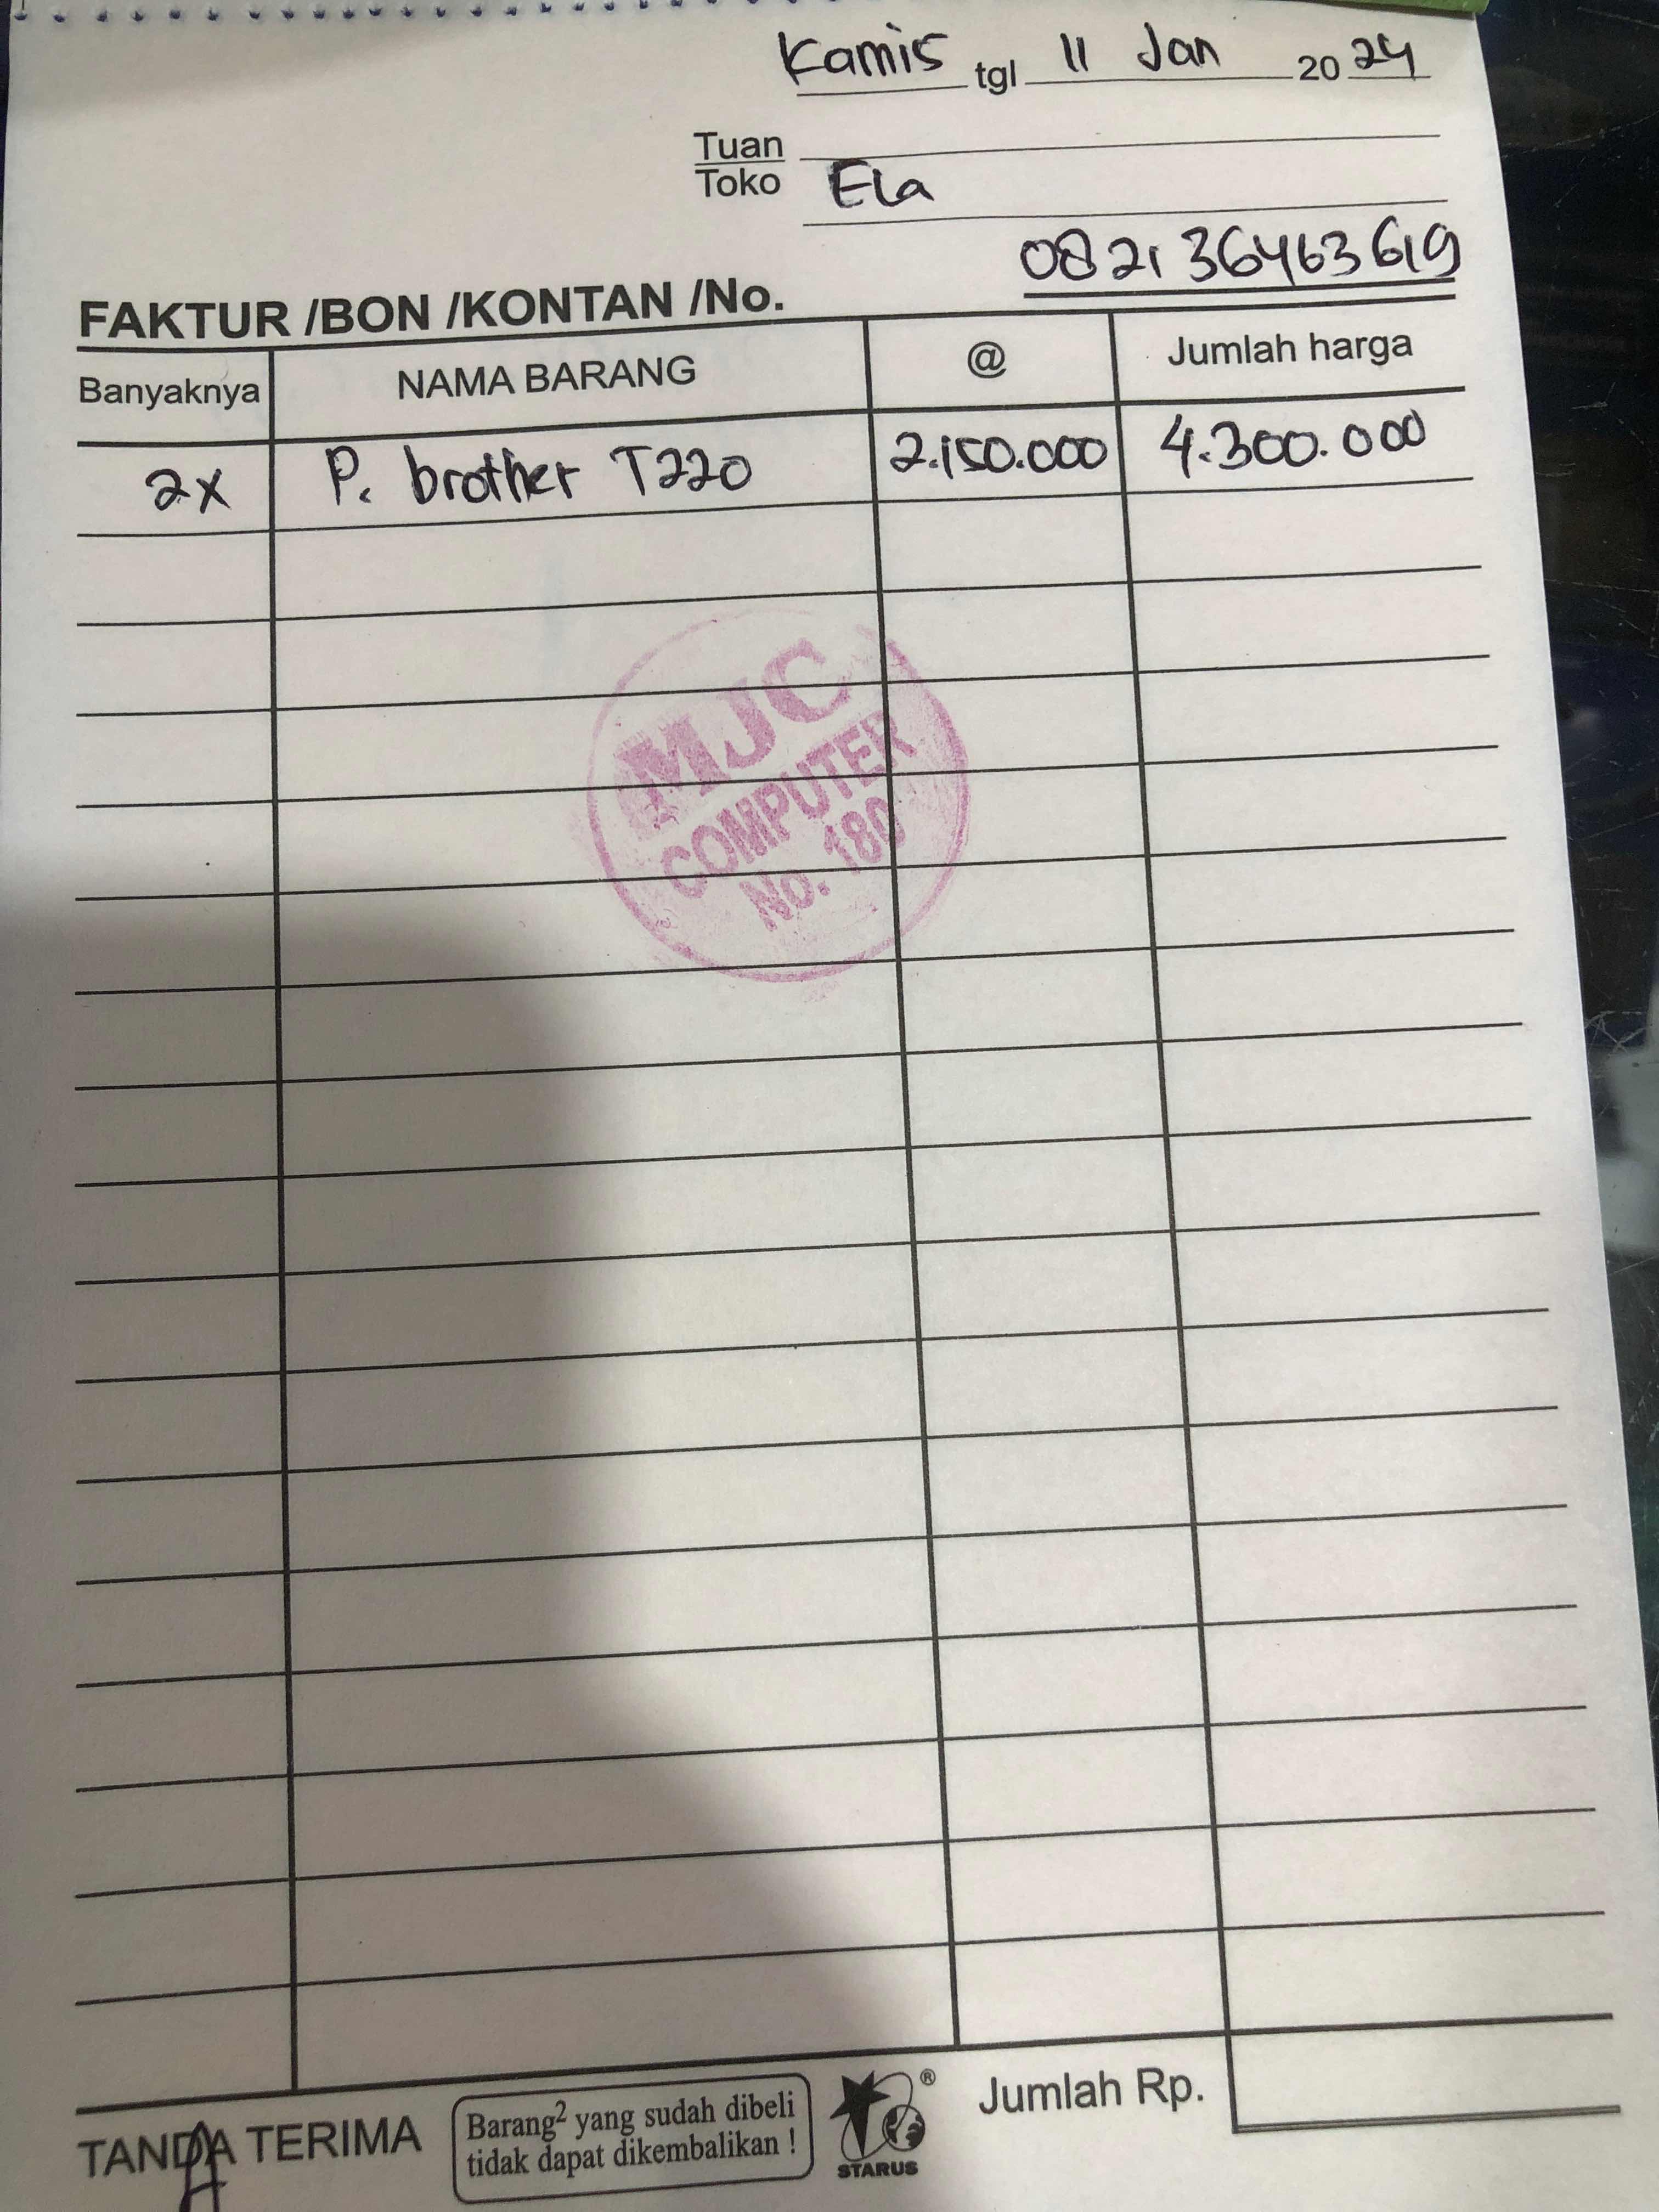 Kamis tgl 11 Jan 2024
Tuan
Toko Ela
082136463619
FAKTUR /BON /KONTAN /No.
Banyaknya NAMA BARANG @ Jumlah harga
2x P. brother T220 2.150.000 4.300.000
MJC
COMPUTER
No. 180
TANDA TERIMA
Barang² yang sudah dibeli
tidak dapat dikembalikan !
STARUS
®
Jumlah Rp.